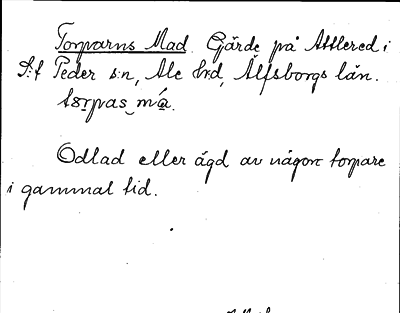 Torparns Mad. Gärde på Attlered i
S:t Peder s:n, Ale hrd, Älfsborgs län.
tɷrpas_ma.
Odlad eller ägd av någon torpare
i gammal tid.